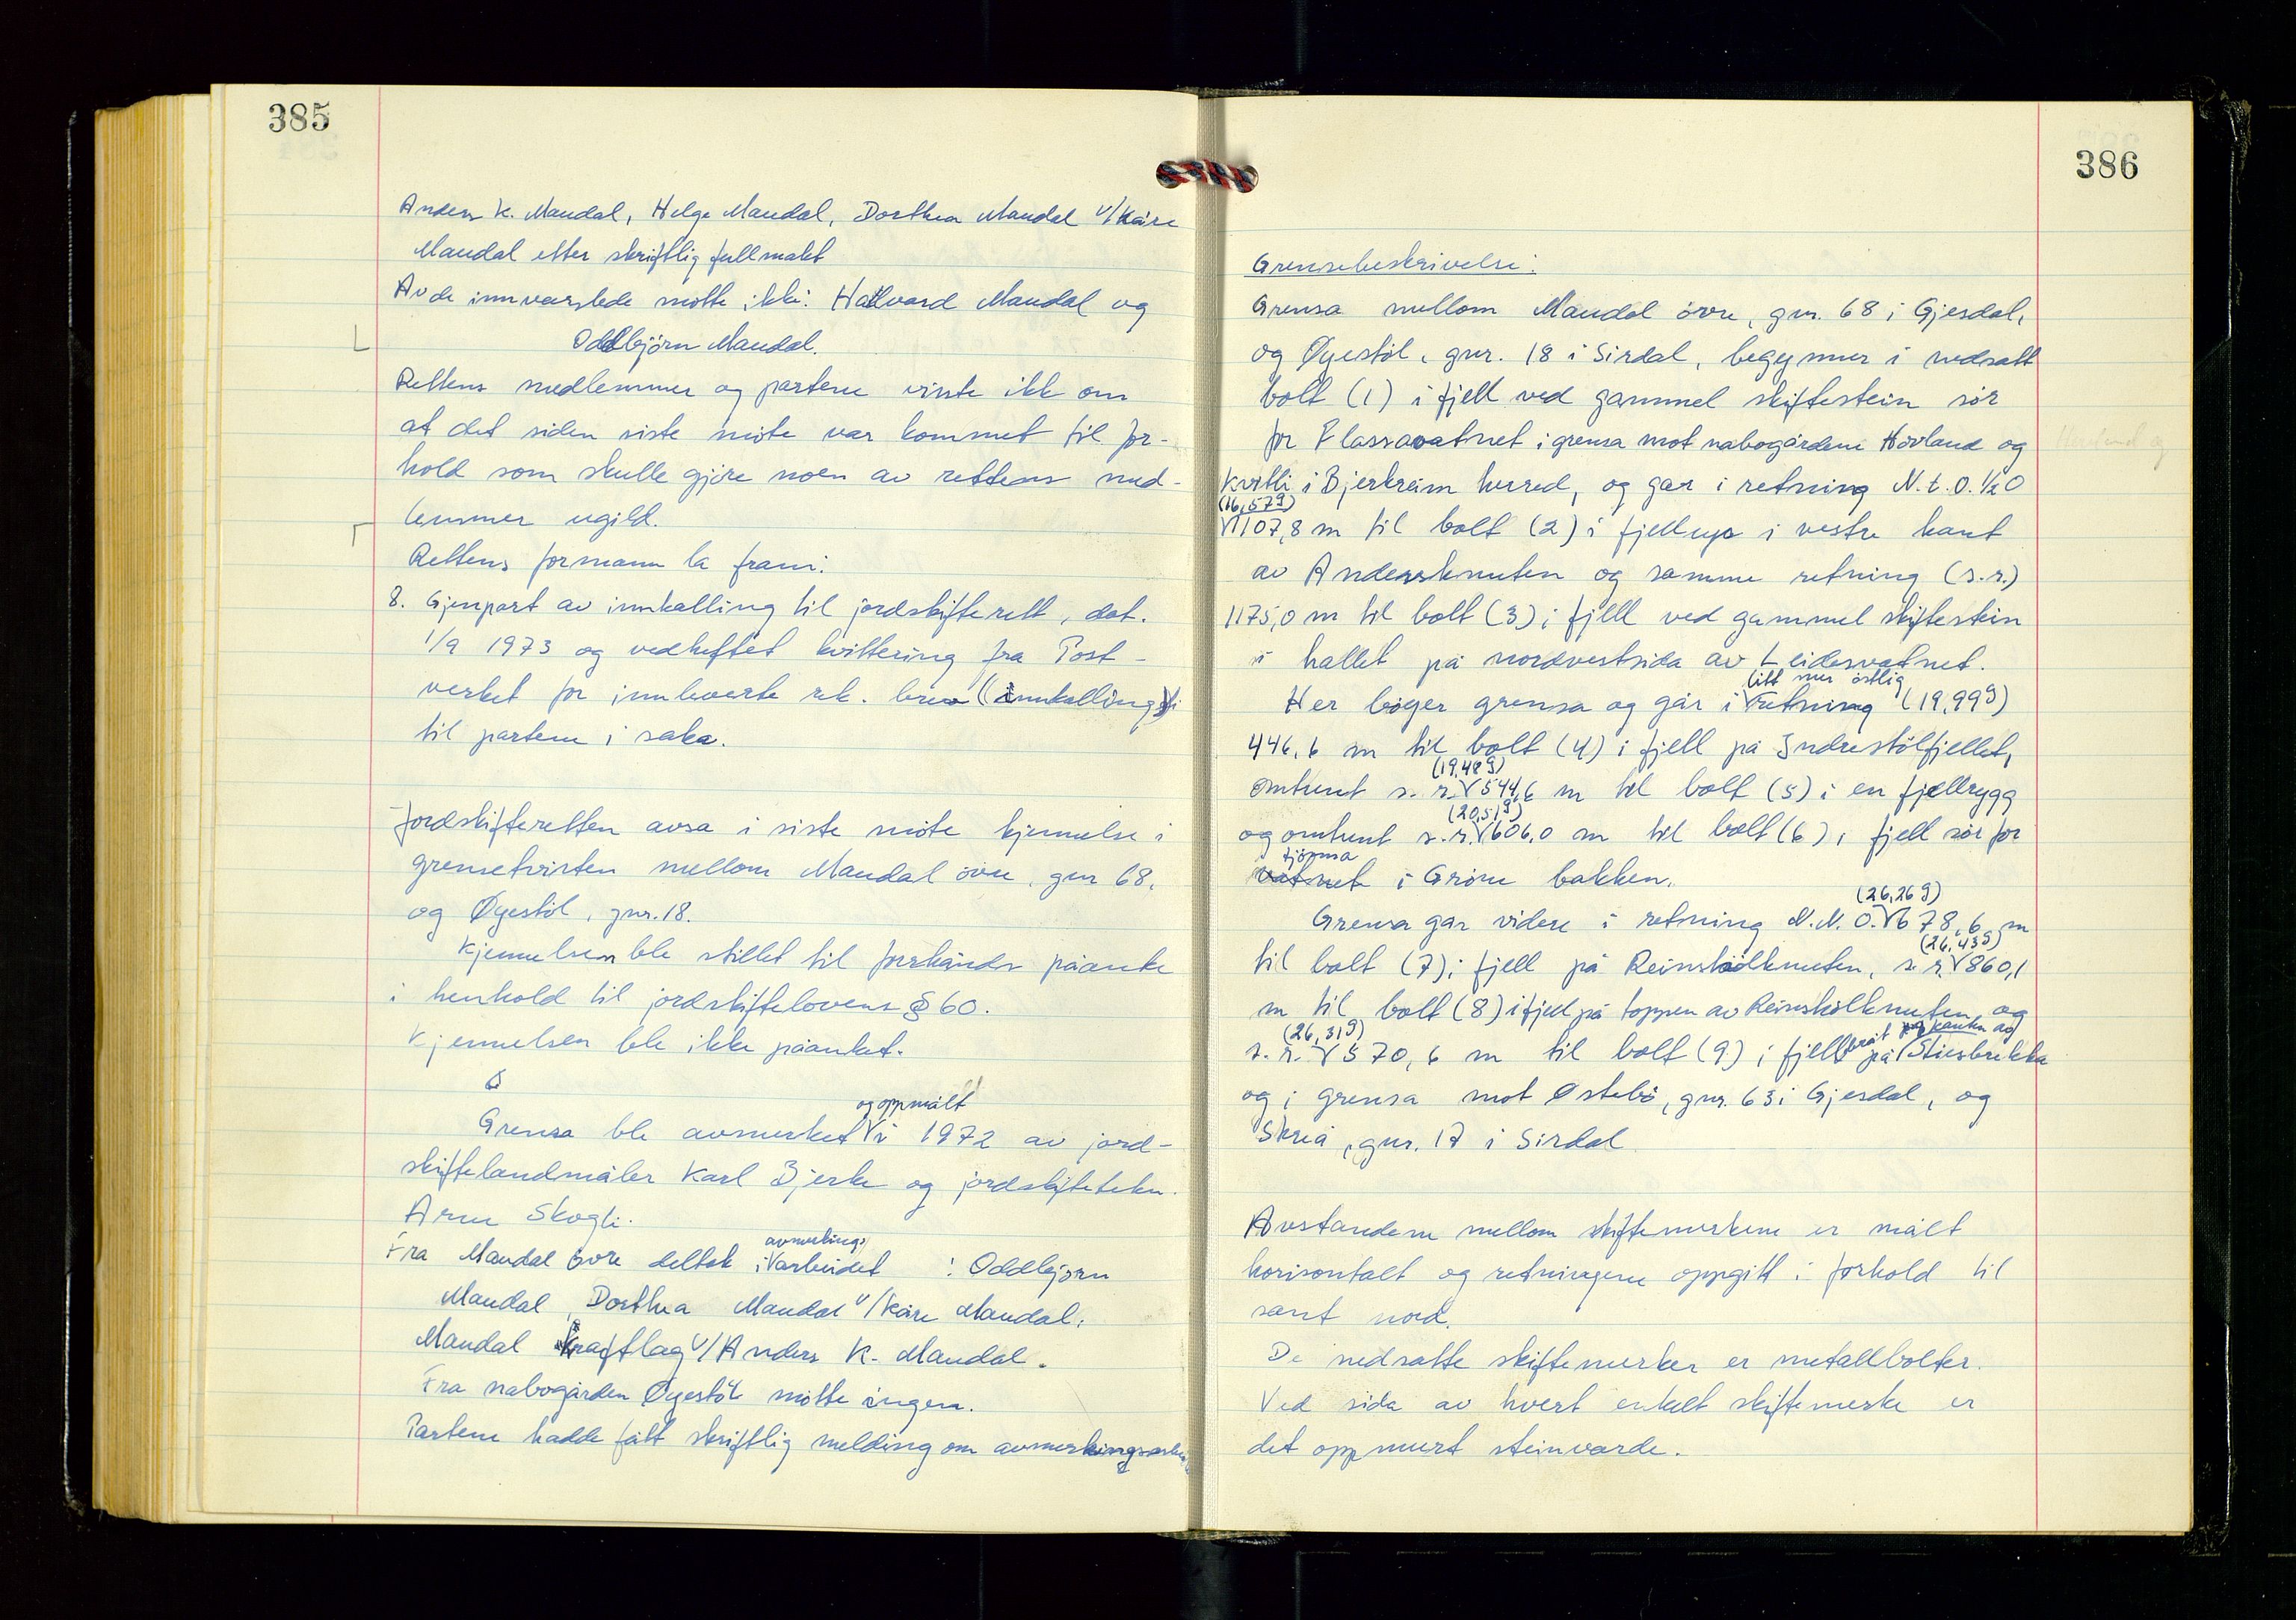 385
Anders K. Maudal, Helge Maudal, Dorthea Maudal v/Kåre
Maudal etter skriftlig fullmakt
Av de innvarslede møtte ikke: Hallvard Maudal og
Oddbjörn Maudal.
Rettens medlemmer og partene visste ikke om
at det siden siste møte var kommet til for-
hold som skulle gjöre noen av rettens med-
lemmer ugild.
Rettens formann la fram:
8. Gjenpart av innkalling til jordskifterett, dat.
1/9 1973 og vedheftet kvittering fra Post-
verket for innleverte rek. brev (innkalling)
til partene i saka.
Jordskifteretten avsa i siste möte kjennelse i
grensetvisten mellom Maudal övre, gnr 68,
og Øyestöl, gnr. 18.
Kjennelsen ble stillet til forhånds påanke
i henhold til jordskiftelovens § 60.
Kjennelsen ble ikke påanket.
og oppmålt
Grensa ble avmerket i 1972 av jord-
skiftelandmåler Karl Bjerke og jordskiftetekn.
Arne Skogli.
avmerkings
Fra Maudal övre deltok i arbeidet : Oddbjørn
Maudal, Dorthea Maudal v/Kåre Maudal,
Maudal Kraftlag v/Anders K. Maudal.
Fra nabogården Øyestöl møtte ingen.
Partene hadde fått skriftlig melding om avmerkingsarb
386
Grensebeskrivelse:
Grensa mellom Maudal övre, gnr. 68 i Gjesdal,
og Øyestöl, gnr. 18 i Sirdal, begynner i nedsatt
bolt (1) i fjell ved gammel skiftestein sör
for Flassavatnet i grensa mot nabogårdene Hovland og
Kvitli i Bjerkreim herred, og går i retning N.t.O.½O
(16,57g)
1107,8 m til bolt (2) i fjellnyp i vestre kant
av Andersknuten og samme retning (s.r.)
1175,0 m til bolt (3) i fjell ved gammel skiftestein
i hallet på nordvestsida av Leidesvatnet.
litt mer östlig
Her böyer grensa og går i retning (19,99g)
446,6 m til bolt (4) i fjell på Indrestölfjellet,
(19,48g)
omtrent s.r. 544,6 m til bolt (5) i en fjellrygg
(20,51g)
og omtrent s.r. 606,0 m til bolt (6) i fjell sör for
tjörna
vatnet i Gröne bakken.
(26,26g)
Grensa går videre i retning N.N.O. 678,6 m
(26,43g)
til bolt (7) i fjell på Reinstölknuten, s.r. 860,1
m til bolt (8) i fjell på toppen av Reinstölknuten og
(26,31g) bratt kanten av
s.r. 570,6 m til bolt (9) i fjell på Stiesbrekka
og i grensa mot Østebö, gnr. 63 i Gjesdal, og
Skreå, gnr. 17 i Sirdal
Avstandene mellom skiftemerkene er målt
horisontalt og retningene oppgitt i forhold til
sant nord.
De nedsatte skiftemerker er metallbolter.
Ved sida av hvert enkelt skiftemerke er
det oppmurt steinvarde.